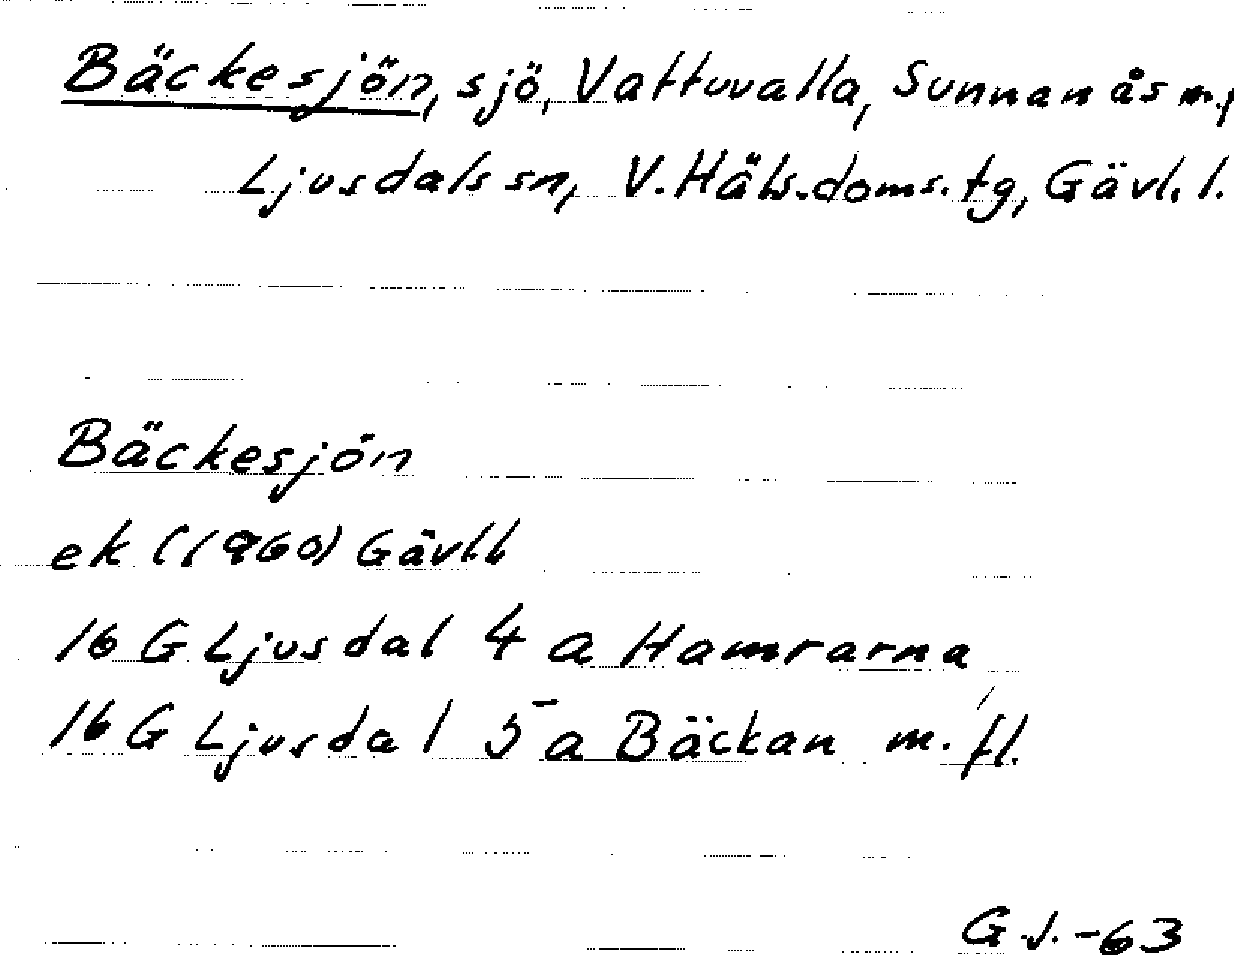 Bäckesjön, sjö, Vattuvalla, Sunnanås m.fl
Ljusdals sn, V. Häls. doms. tg, Gävl. l.
Bäckesjön
ek (1960) Gävl.l.
16 G Ljusdal 4 a Hamrarna
16 G Ljusdal 5 a Bäckan m. fl.
G.J. -63